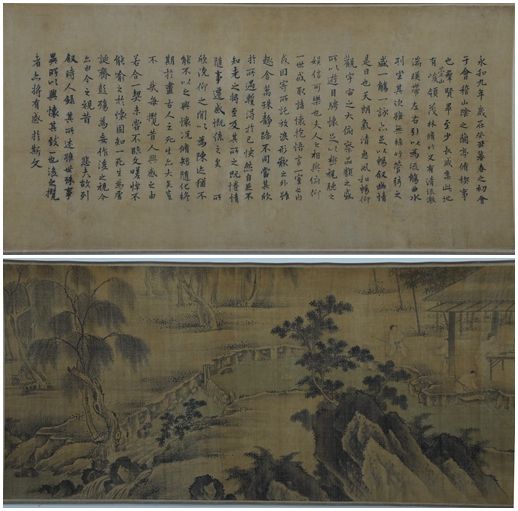 永和九年歲在癸丑暮春之初會
于會稽山陰之蘭亭脩稧事
也群賢畢至少長咸集此地
有崇山峻領茂林脩竹又有清流激
湍暎帶左右引以為流觴曲水
列坐其次雖無絲竹管弦之
盛一觴一詠亦足以暢敘幽情
是日也天朗氣清惠風和暢仰
觀宇宙之大俯察品類之盛
所以遊目騁懷足以極視聽之
娛信可樂也夫人之相與俯仰
一世或取諸懷抱悟言一室之內
或因寄所託放浪形骸之外雖
趣舍萬殊靜躁不同當其欣
於所遇蹔得於己快然自足不
知老之將至及其所之既惓情
隨事遷感慨係之矣 所
欣俛仰之閒以為陳迹猶不
能不以之興懷況脩短隨化終
期於盡古人云死生亦大矣豈
不 哉每攬昔人興感之由
若合一契未嘗不臨文嗟悼不
能喻之於懷固知一死生為虛
誕齊彭殤為妄作後之視今
亦由今之視昔 悲夫故列
敘時人錄其所述雖世殊事
異所以興懷其致一也後之攬
者亦將有感於斯文